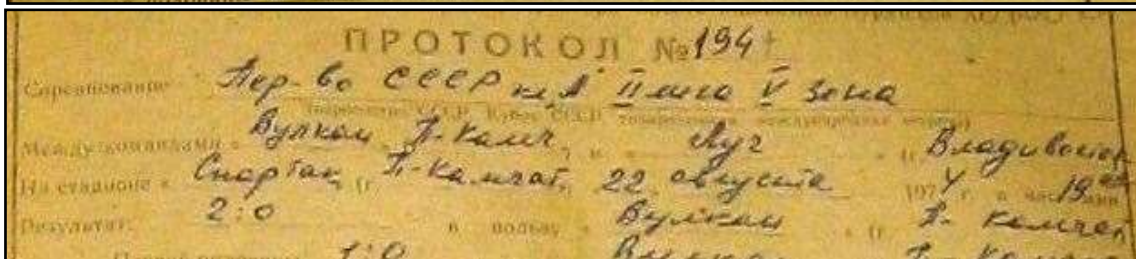 ПРОТОКОЛ № 194
Соревнование Пер-во СССР кл. "А" II лига V зона
Между командами « Вулкан П-Камч. » и « Луч » (г. Владивосток
На стадионе « Спартак (г. П-Камчат. 22 августа 197 4 г. в 19 часов
Результат: 2:0 в пользу « Вулкан » (г. П-Камчат
1:0 Вулкан П-Камчат